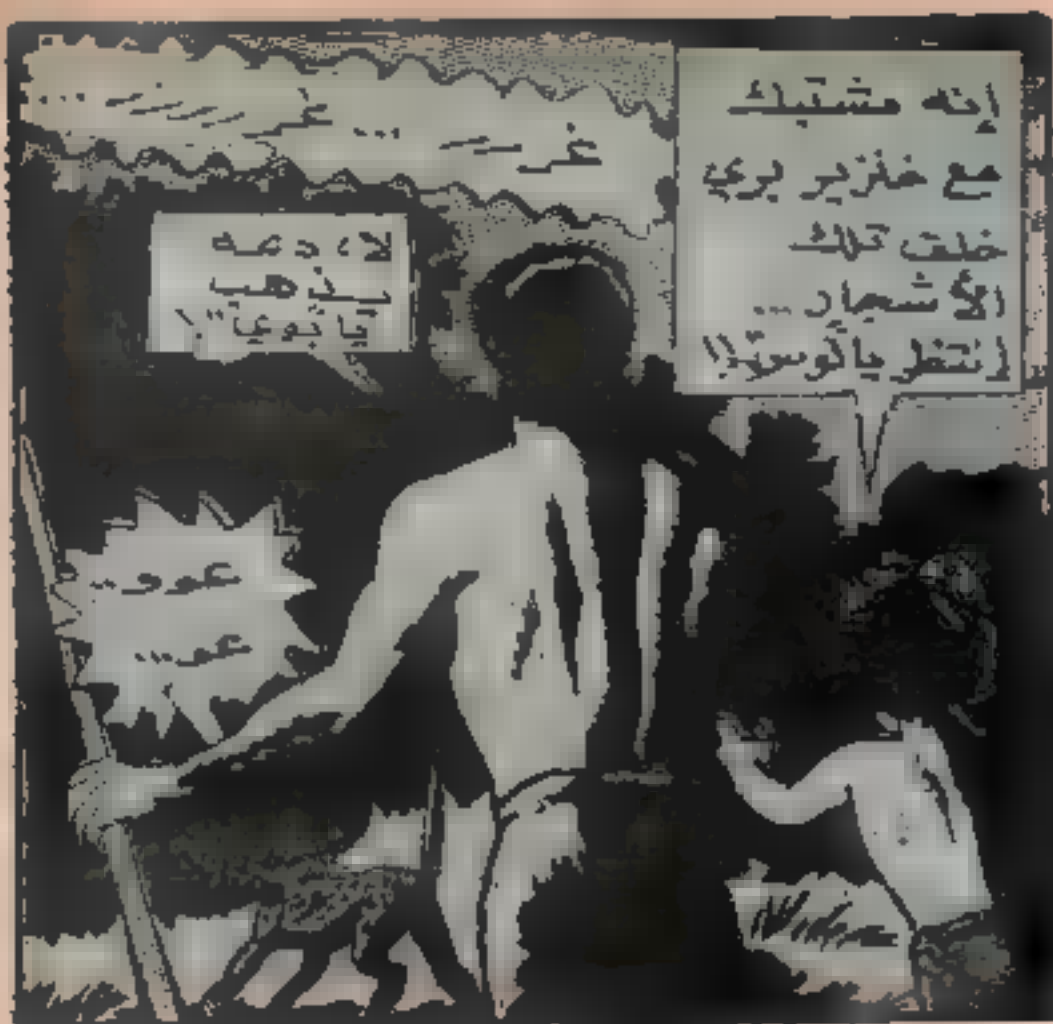 إنه مشتبك
مع خنزير بري
خلف تلك
الأشجار ...
انتظر يا لوسوتو!!
غرر ... غررر ...
لا، دعه
يذهب
يا بوي"!
عوو..
عو...